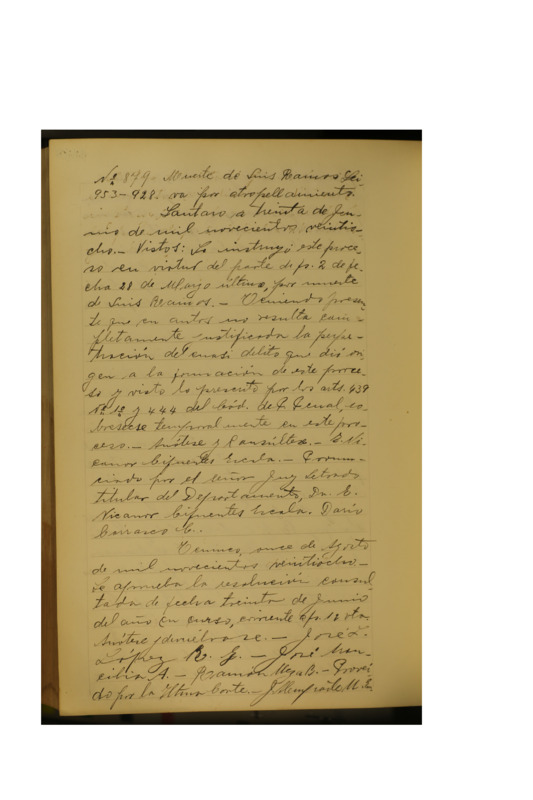 Nº 849. Muerte de Luis Ramos
953-928. va por atropellamiento.
Lautaro a treinta de Ju-
nio de mil novecientos veintio-
cho.- Vistos: Se instruyó este proce-
so en virtud del parte de fs. 2 de fe-
cha 28 de Mayo último, por muerte
de Luis Ramos.- Teniendo presen-
te que en autos no resulta com-
pletamente justificada la perpe-
tración del cuasi delito que dió ori-
gen a la formación de este proce-
so y visto lo prescrito por los arts. 439
Nº 1º y 444 del Cód. de P. Penal, so-
breséese temporalmente en este pro-
ceso.- Anótese y Consúltese.- E. Ni-
canor Cifuentes Escala.- Pronun-
ciado por el señor Juez Letrado
titular del Departamento, Dn. E.
Nicanor Cifuentes Escala. Darío
Carrasco C..
Temuco, once de Agosto
de mil novecientos veintiocho.-
Se aprueba la resolución consul-
tada de fecha treinta de Junio
del año en curso, corriente a fs. 12 vta.
Anótese y devuélvase.- José L.
López R. G.- José
A.- Ramón Meza B.- Proveí-
do por la Iltma Corte.-